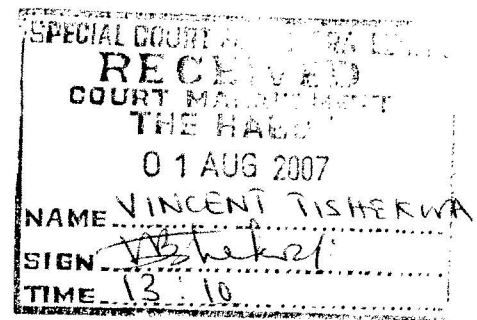 SPECIAL COURT
RECEIVED
COURT MANAGEMENT
THE HAGUE
01 AUG 2007
NAME VINCENT TISHEKWA
SIGN
TIME 13:10